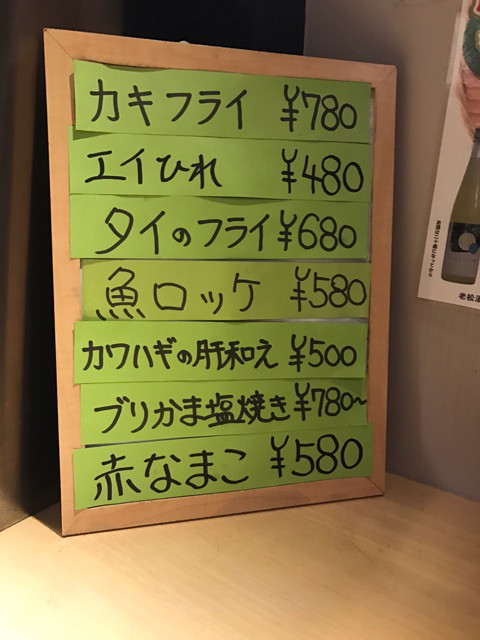 カキフライ ¥780
エイひれ ¥480
タイのフライ ¥680
魚ロッケ ¥580
カワハギの肝和え ¥500
ブリかま塩焼き ¥780~
赤なまこ ¥580